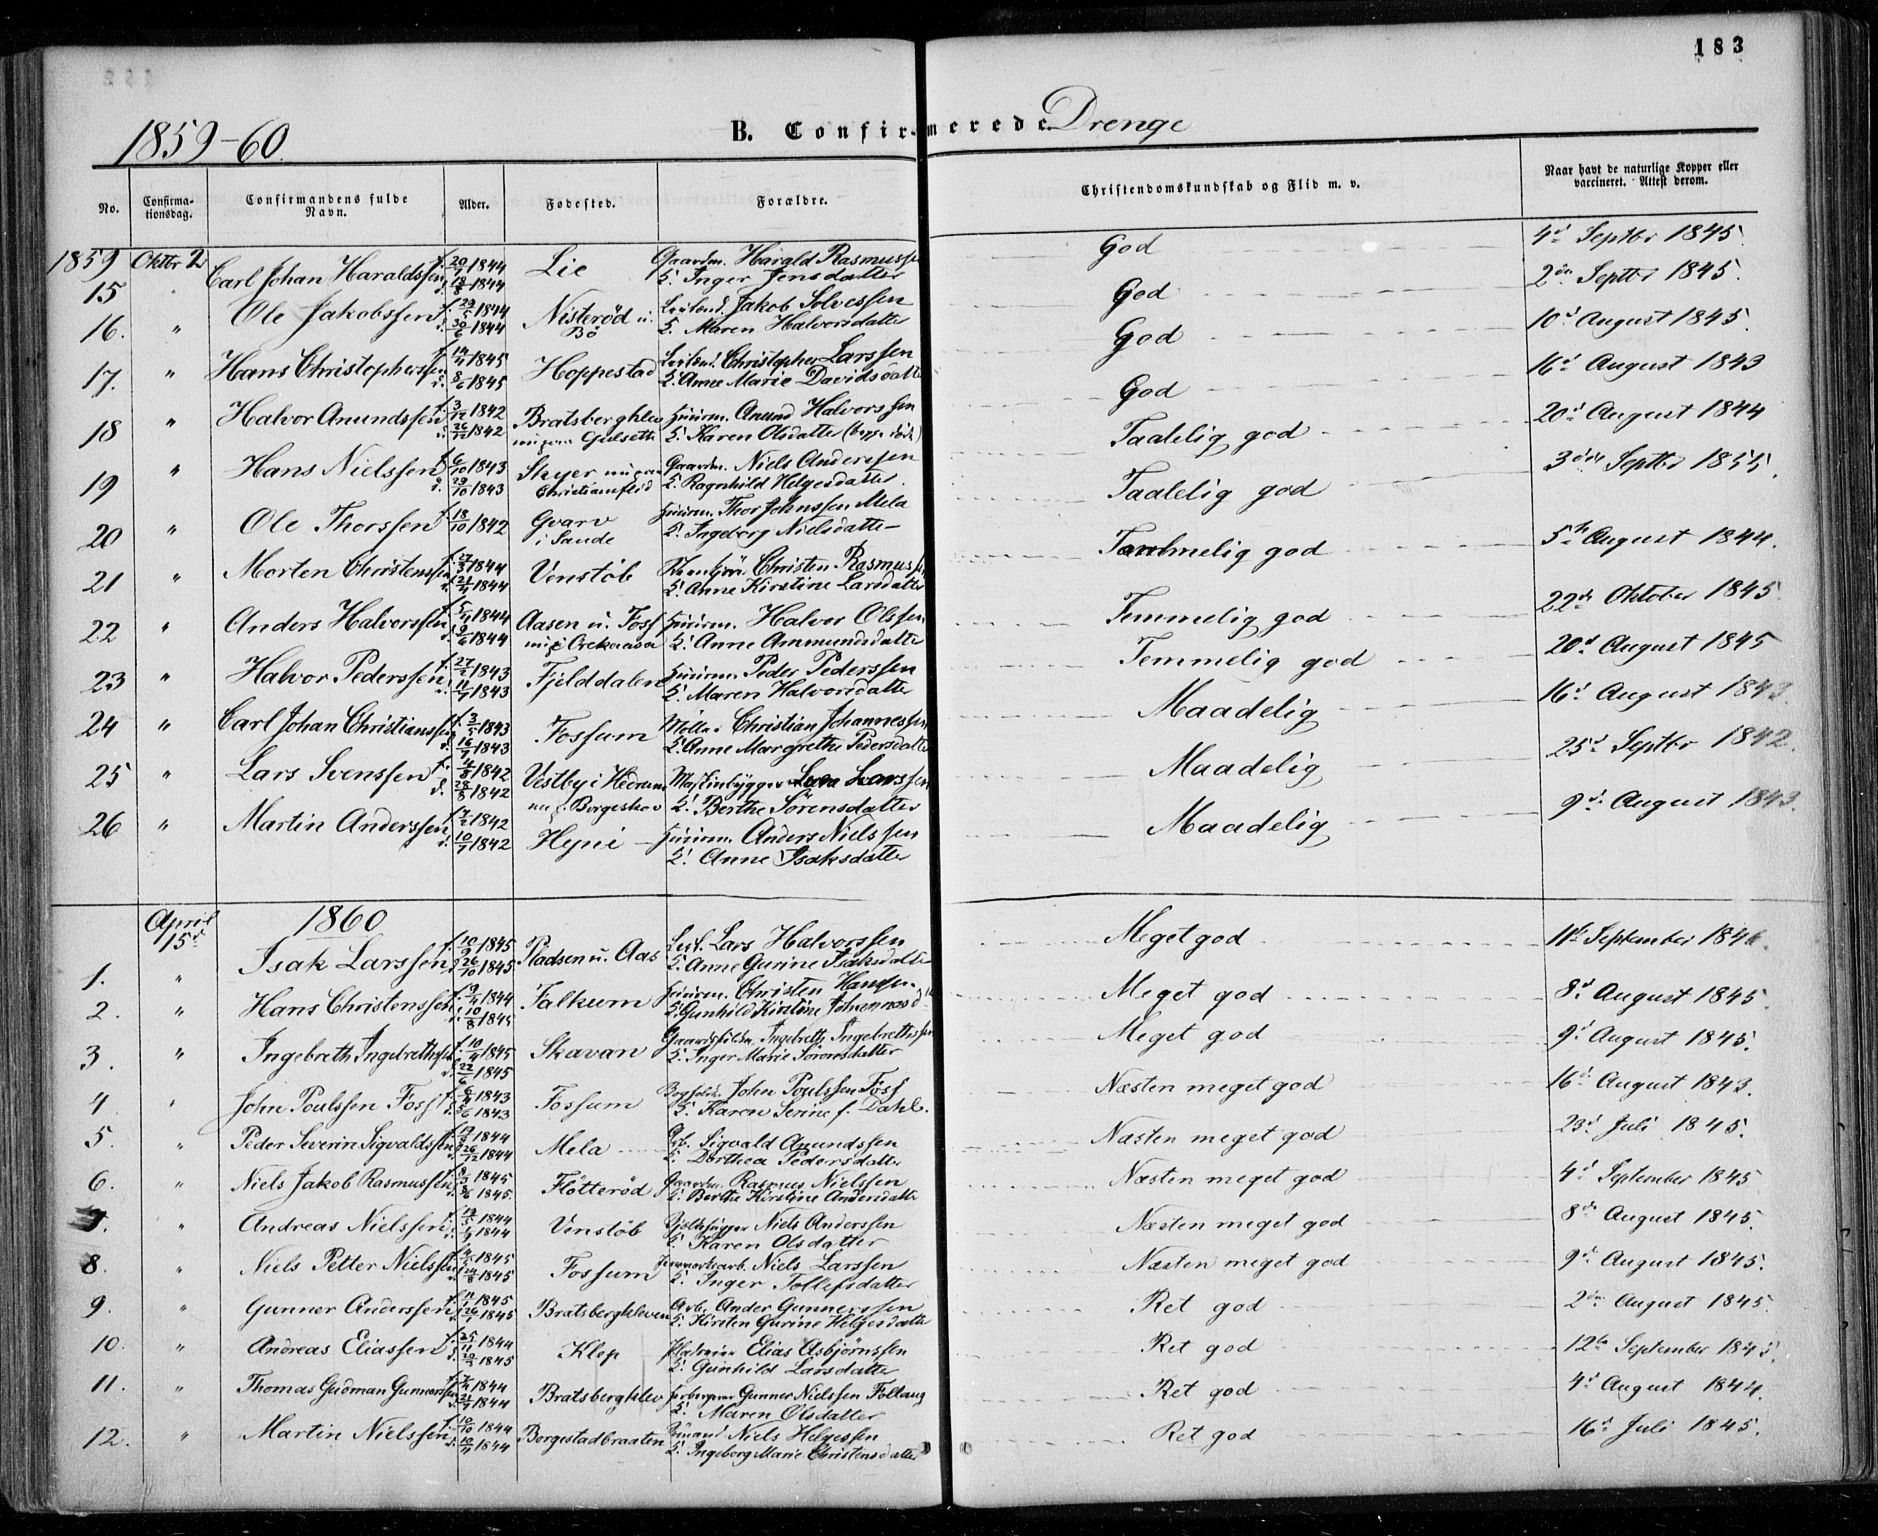 183
1859-60.
B. Confirmerede Drenge
No. Confirmationsdag. Confirmandens fulde Navn. Alder. Fødested. Forældre. Christendomskundskab og Flid m. v. Naar havt de naturlige Kopper eller vaccineret. Attest derom.
1859 Oktbr 2
15 Carl Johan Haraldssen f. 20/7 1844 d. 18/8 1844 Lie Gaardm. Harald Rasmussen
Inger Jensdatter God 4d Septbr 1845.
16. " Ole Jakobssen f. 29/5 1844 d. 30/6 1844 Nisterød u. Bö Jakob Solvessen
Maren Halvorsdatter God 2den Septbr 1845.
17. " Hans Christopherssen f. 14/4 1845 d. 8/6 1845 Hoppestad Christopher Larssen
Anne Marie Davidsdatter God 10d August 1845.
18 " Halvor Anundssen f. 3/12 1842 d. 26/12 1842 Bratsbergklev Gjelseth Huusm. Anund Halvorssen
Karen Olsdatter God 16d August 1843
19 " Hans Nielssen f. 6/10 1843 d. 29/10 1843 Skyer Christiansfeld Gaardm. Niels Anderssen
Ragnhild Helgesdatter. Taalelig god 20d August 1844
20 " Ole Thorssen f. 18/10 1842 Gvarv i Saude Huusm. Thor Johnssen Mela
Ingeborg Nielsdatter Taalelig god 3die Septbr 1855.
21 " Morten Christenssen f. 27/3 1844 d. 21/4 1844 Venstöb Christen Rasmussen
Anne Kirstine Larsdatter Temmelig god 5te August 1844.
22 " Anders Halvorssen f. 5/4 1844 d. 9/6 1844 Aasen u. Foss Huusm. Halvor Olssen
Anne Ammundsdatter Temmelig god 22de Oktober 1845.
23 " Halvor Pederssen f. 27/2 1843 d. 11/7 1843 Fjelddalen Huusm. Peder Pederssen
Maren Halvorsdatter Temmelig god 20d August 1845
24 " Carl Johan Christianssen f. 3/5 1843 d. 16/7 1843 Fossum Möller Christian Johannessen
Anne Margrethe Pedersdatter Maadelig 16d August 1843.
25 " Lars Svenssen f. 4/8 1842 d. 28/8 1842 Vestby i Hedrum Borgeskov Maskinbygger
Berthe Sörensdatter Maadelig 25d Septbr 1842.
26 " Martin Anderssen f. 7/2 1842 d. 10/7 1842 Hyni Huusm. Anders Nielssen
Anne Isaksdatter Maadelig 9d August 1843.
April 15d 1860
1. " Isak Larssen f. 10/9 1845 d. 26/10 1845 Pladsen u. Aas Lars Halvorssen
Anne Gurine Isaksdatter Meget god 11te September 1846.
2. " Hans Christenssen f. 9/4 1844 d. 10/8 1845 Falkum Huusm. Christen Hanssen
Gunhild Kirstine Meget god 8d August 1845.
3. " Ingebreth Ingebrethssen f. 10/4 1845 d. 22/6 1845 Skavan Ingebreth Ingebrethssen
Inger Marie Sörensdatter Meget god 9d August 1845.
4 " John Poulssen Foss 1843 1843 Fossum John Poulssen Foss
Karen Serine f. Dahl. Næsten meget god 16d August 1843.
5. " Peder Severin Sigvaldssen 1844 26/12 1844 Mela Arb. Sigvald Anundssen
Dorthea Pedersdatter Næsten meget god 23d Juli 1845.
6. " Niels Jakob Rasmussen f. 8/3 1845 d. 8/6 1845. Flötteröd Gaardm. Rasmus Nielssen
Berthe Kirstine Andersdatter Næsten meget god 4d September 1845
7. " Andreas Nielssen 1844 1844 Venstöb Niels Anderssen
Karen Olsdatter Næsten meget god 8de August 1845.
8. " Niels Petter Nielssen 1845 1845 Fossum Niels Larssen
Inger Tollefsdatter Næsten meget god 9d August 1845.
9. " Gunner Anderssen 1845 1845 Bratsbergkleven Arb. Ander Gunnerssen
Kirsten Gurine Helgesdatter Ret god 2den August 1845.
10. " Andreas Eliassen f. 25/11 1844 d. 20/2 1845 Klep Elias Asbjørnssen
Gunhild Larsdatter Ret god 12te September 1845.
11. " Thomas Gudman Gunnerssen 1844 1844 Bratsbergklev Gunner Nielssen
Maren Olsdatter Ret god 4d August 1844.
12. " Martin Nielssen 1844 1844 Borgestadbraaten Niels Helgessen
Ingeborg Marie Christensdatter Ret god 16d Juli 1845.